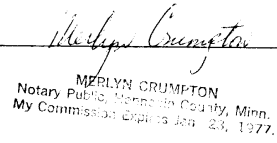 Merlyn Crumpton
MERLYN CRUMPTON
Notary Public, Hennepin County, Minn.
My Commission Expires Jan 23, 1977.